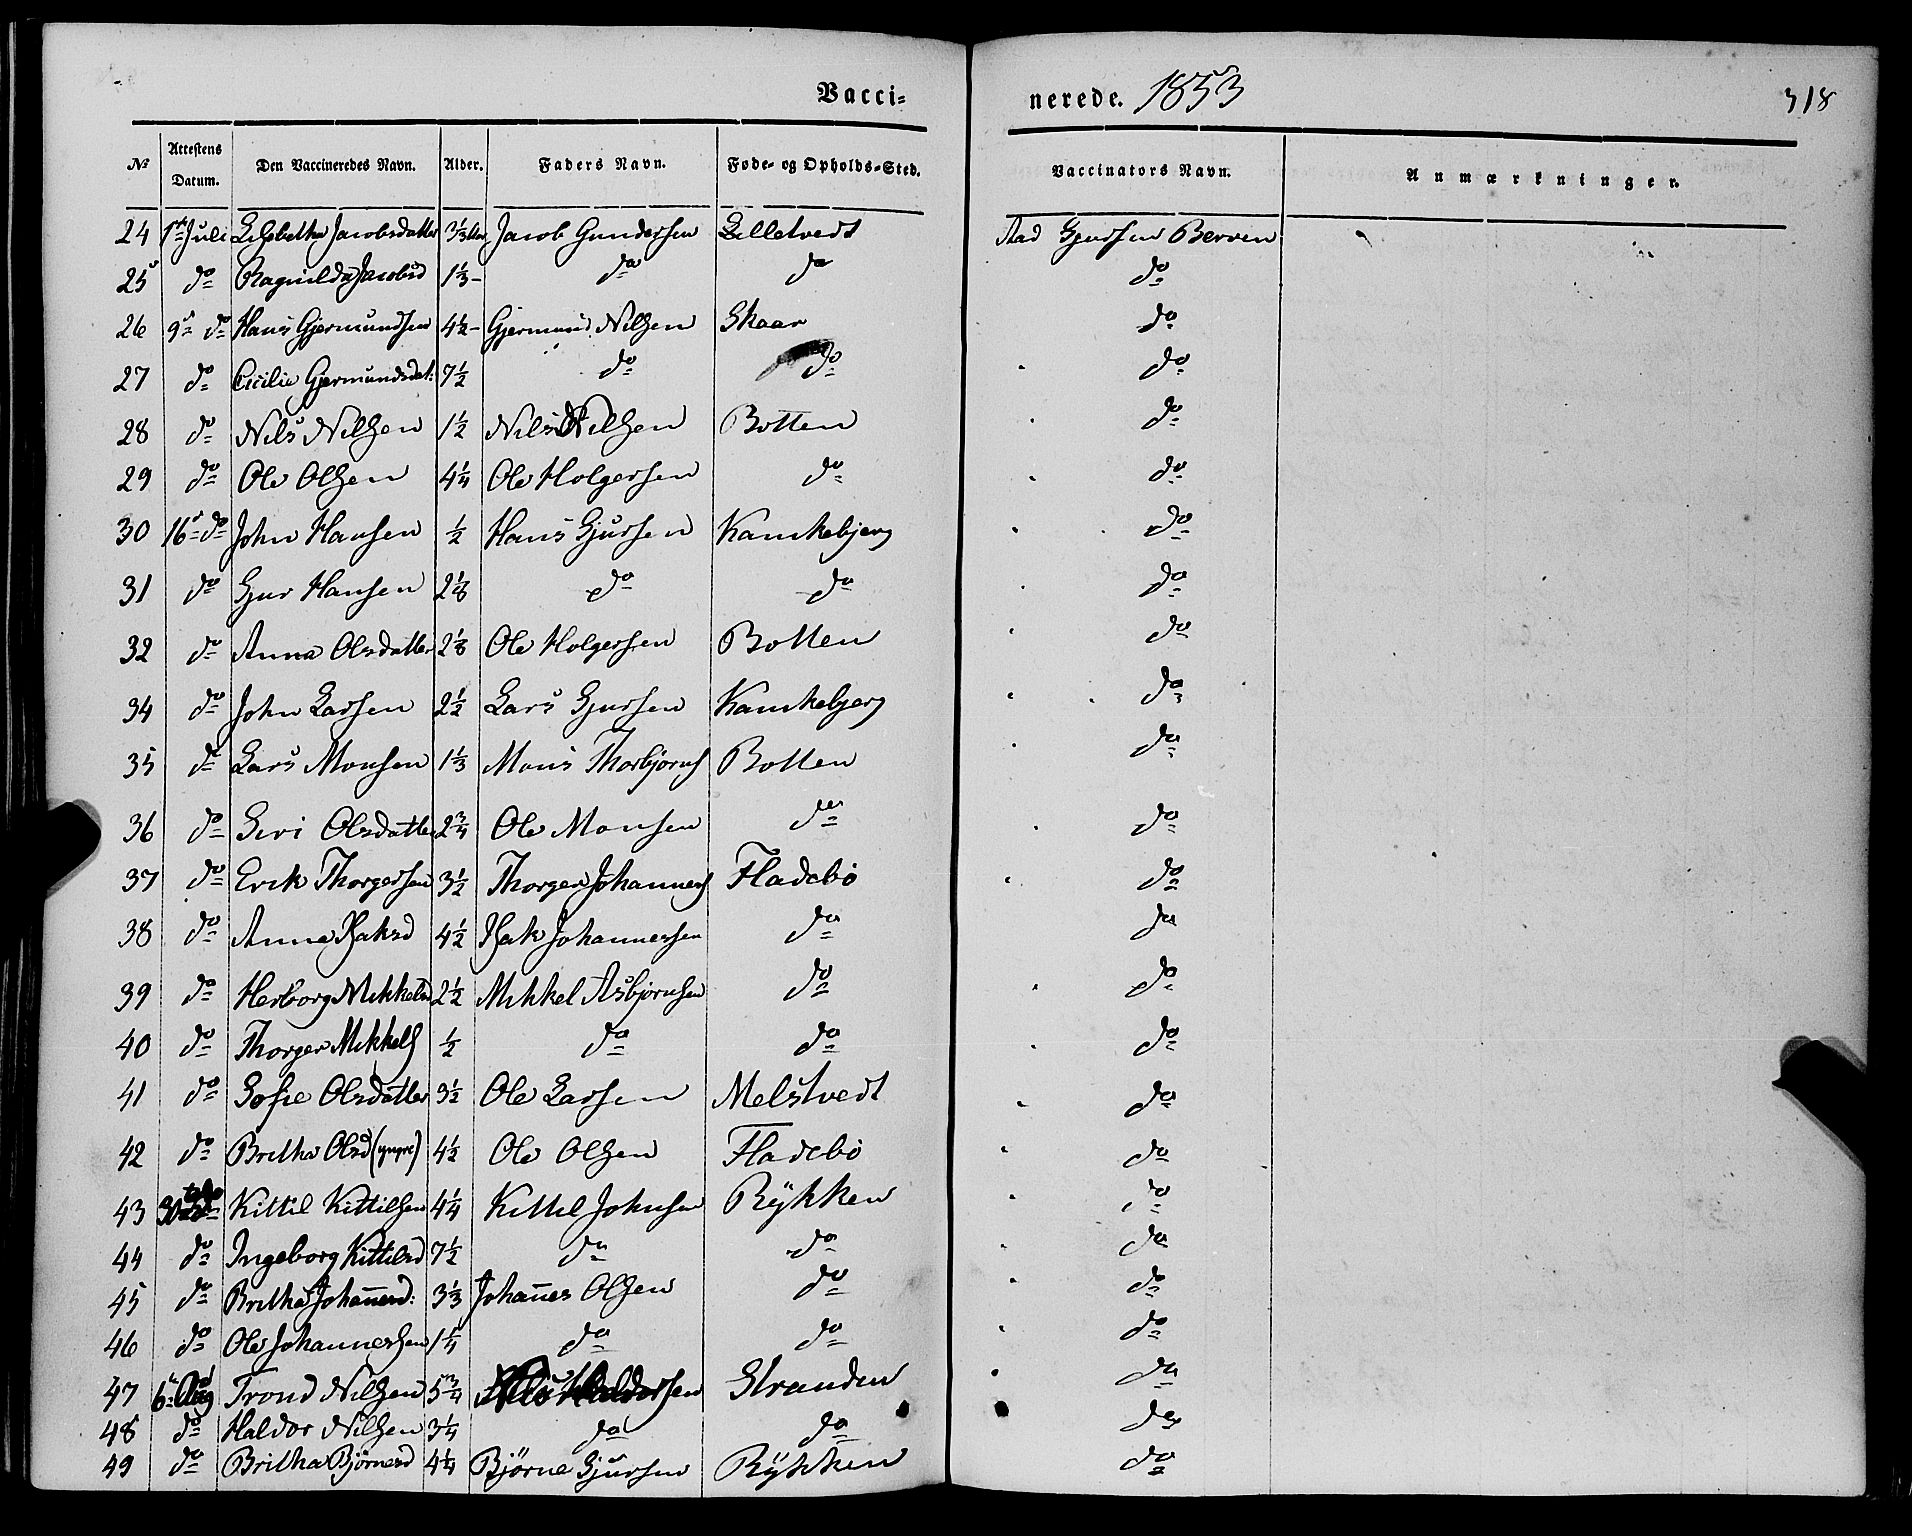 Vacci= nerede. 1853 318
№ Attestens Datum. Den Vaccineredes Navn. Alder. Faders Navn. Føde- og Opholds-Sted. Vaccinators Navn. Anmærkninger.
24 1ste Juli Lisbetha Jacobsdatter 3⅓ Jacob Gundersen Lilletvedt Aad Gjursen Berven
25 do Ragnilda Jacobsd 1⅓ - do do do
26 9de do Hans Gjermundsen 4½ - Gjermund Nilsen Skaar do
27 do Cicilie Gjermundsdat: 7½ do do do
28 do Nils Nilsen 1½ Nils Nilsen Botten do
29 do Ole Olsen 4¼ Ole Holgersen do do
30 16de do John Hansen ½ Hans Gjursen Kamkebjerg do
31 do Gjur Hansen 2⅛ do do do
32 do Anna Olsdatter 2⅛ Ole Holgersen Botten do
34 do John Larsen 2½ Lars Gjursen Kamkebjerg do
35 do Lars Monsen 1⅓ Mons Thorbjørns Botten do
36 do Siri Olsdatter 2¾ Ole Monsen do do
37 do Erik Thorgersen 3½ Thorger Johannes Fladebø do
38 do Anna Isaksd 4½ Isak Johannessen do do
39 do Herborg Mikkelsd 2½ Mikkel Asbjørnsen do do
40 do Thorger Mikkels ½ do do do
41 do Sofie Olsdatter 3½ Ole Larsen Melstvedt do
42 do Britha Olsd (yngre) 4½ Ole Olsen Fladebø do
43 30te do Kittil Kittilsen 4¼ Kittil Johnsen Rykken do
44 do Ingeborg Kittilsd 7½ do do do
45 do Britha Johannesd: 3⅓ Johannes Olsen do do
46 do Ole Johannessen 1¼ do do do
47 6te Aug Trond Nilsen 5¾ Nils Haldorsen Stranden do
48 do Haldor Nilsen 3¼ do do do
49 do Britha Bjørnesd 4¼ Bjørne Gjursen Rykken do